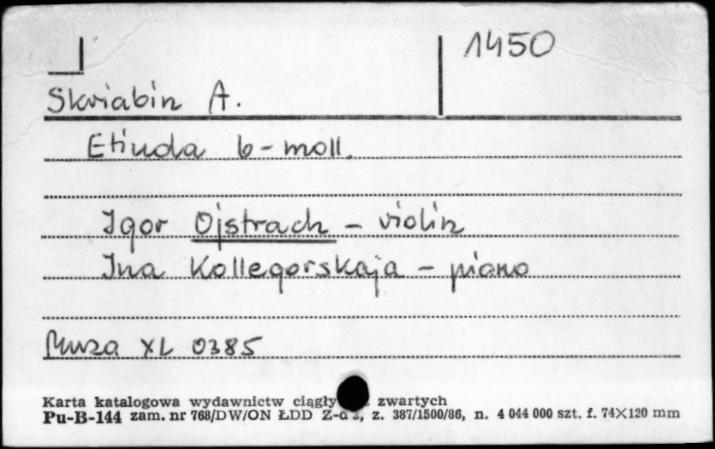 1450
Skriabin A.
Etiuda b-moll.
Igor Ojstrach – violin
Ina Kollegorskaja – piano
Muza XL 0385
Karta katalogowa wydawnictw ciągły zwartych
Pu-B-144 zam. nr 768/DW/ON ŁDD z. 387/1500/86, n. 4 044 000 szt. f. 74×120 mm